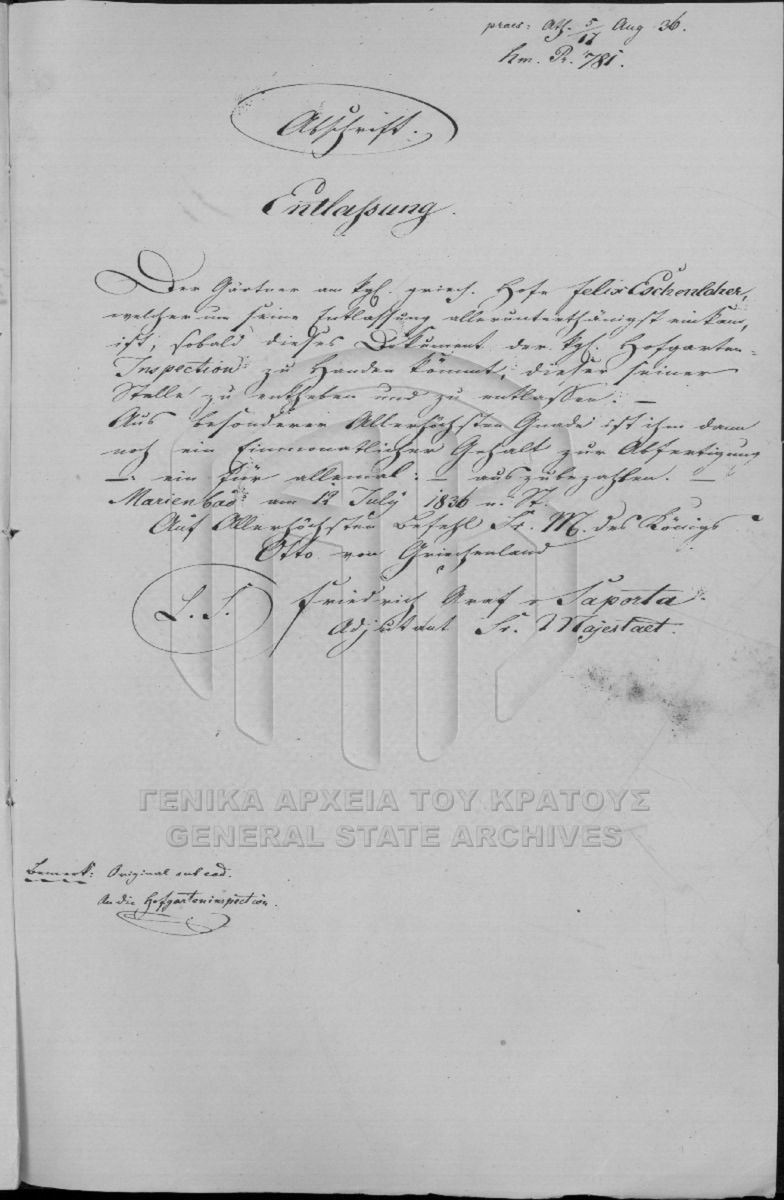 praes: Ath. 5/17 Aug 36.
hm. Pr. 781.
Abschrift.
Entlaßung.
Der Gärtner am kgl. griech. Hofe Felix Eschenloher,
welcher um seine Entlassung allerunterthänigst einkam,
ist, sobald dieses Dokument der kgl. Hofgarten-
Inspection zu Handen kömmt, dieser seiner
Stelle zu entheben und zu entlassen. —
Aus besonderer Allerhöchsten Gnade ist ihm dann
noch ein Einmonatlicher Gehalt zur Abfertigung
—: ein für allemal :— auszubezahlen. —
Marienbad am 12 July 1836 n. St.
Auf Allerhöchsten Befehl Sr. M. des Königs
Otto von Griechenland
L. S. Friedrich Graf v Saporta.
Adjutant Sr. Majestaet.
ΓΕΝΙΚΑ ΑΡΧΕΙΑ ΤΟΥ ΚΡΑΤΟΥΣ
GENERAL STATE ARCHIVES
Bemerk: Original sub eod.
An die Hofgarteninspection.